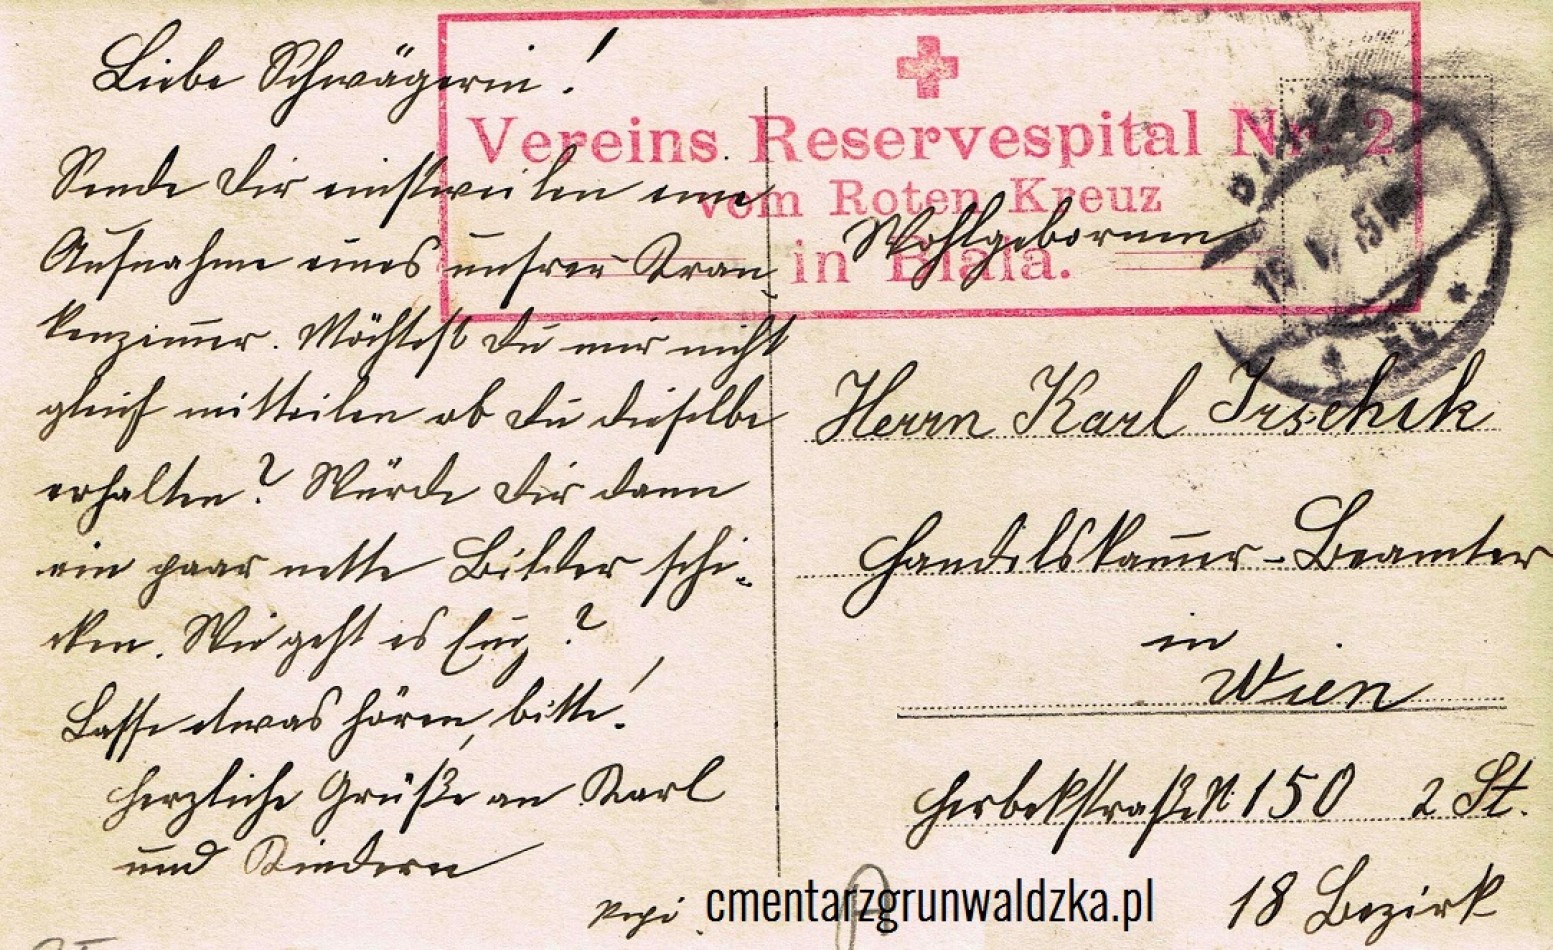 Liebe Schwägerin!
Sende Dir einstweilen eine
Aufnahme eines unsrer Kran
kenzim̅er. Möchtest Du mir nicht
gleich mitteilen ob Du dieselbe
erhalten? Würde Dir dann
ein paar nette Bilder schi-
cken. Wie geht es Euch?
Lasse etwas hören, bitte!
Herzliche Grüße an Karl
und Kindern
Vereins Reservespital Nr. 2
vom Roten Kreuz
in Biala.
Wohlgeboren
Herrn Karl Irschik
Handelskam̅er-Beamter
in
Wien
Herbekstraße N. 150 2 St.
18 Bezirk
cmentarzgrunwaldzka.pl